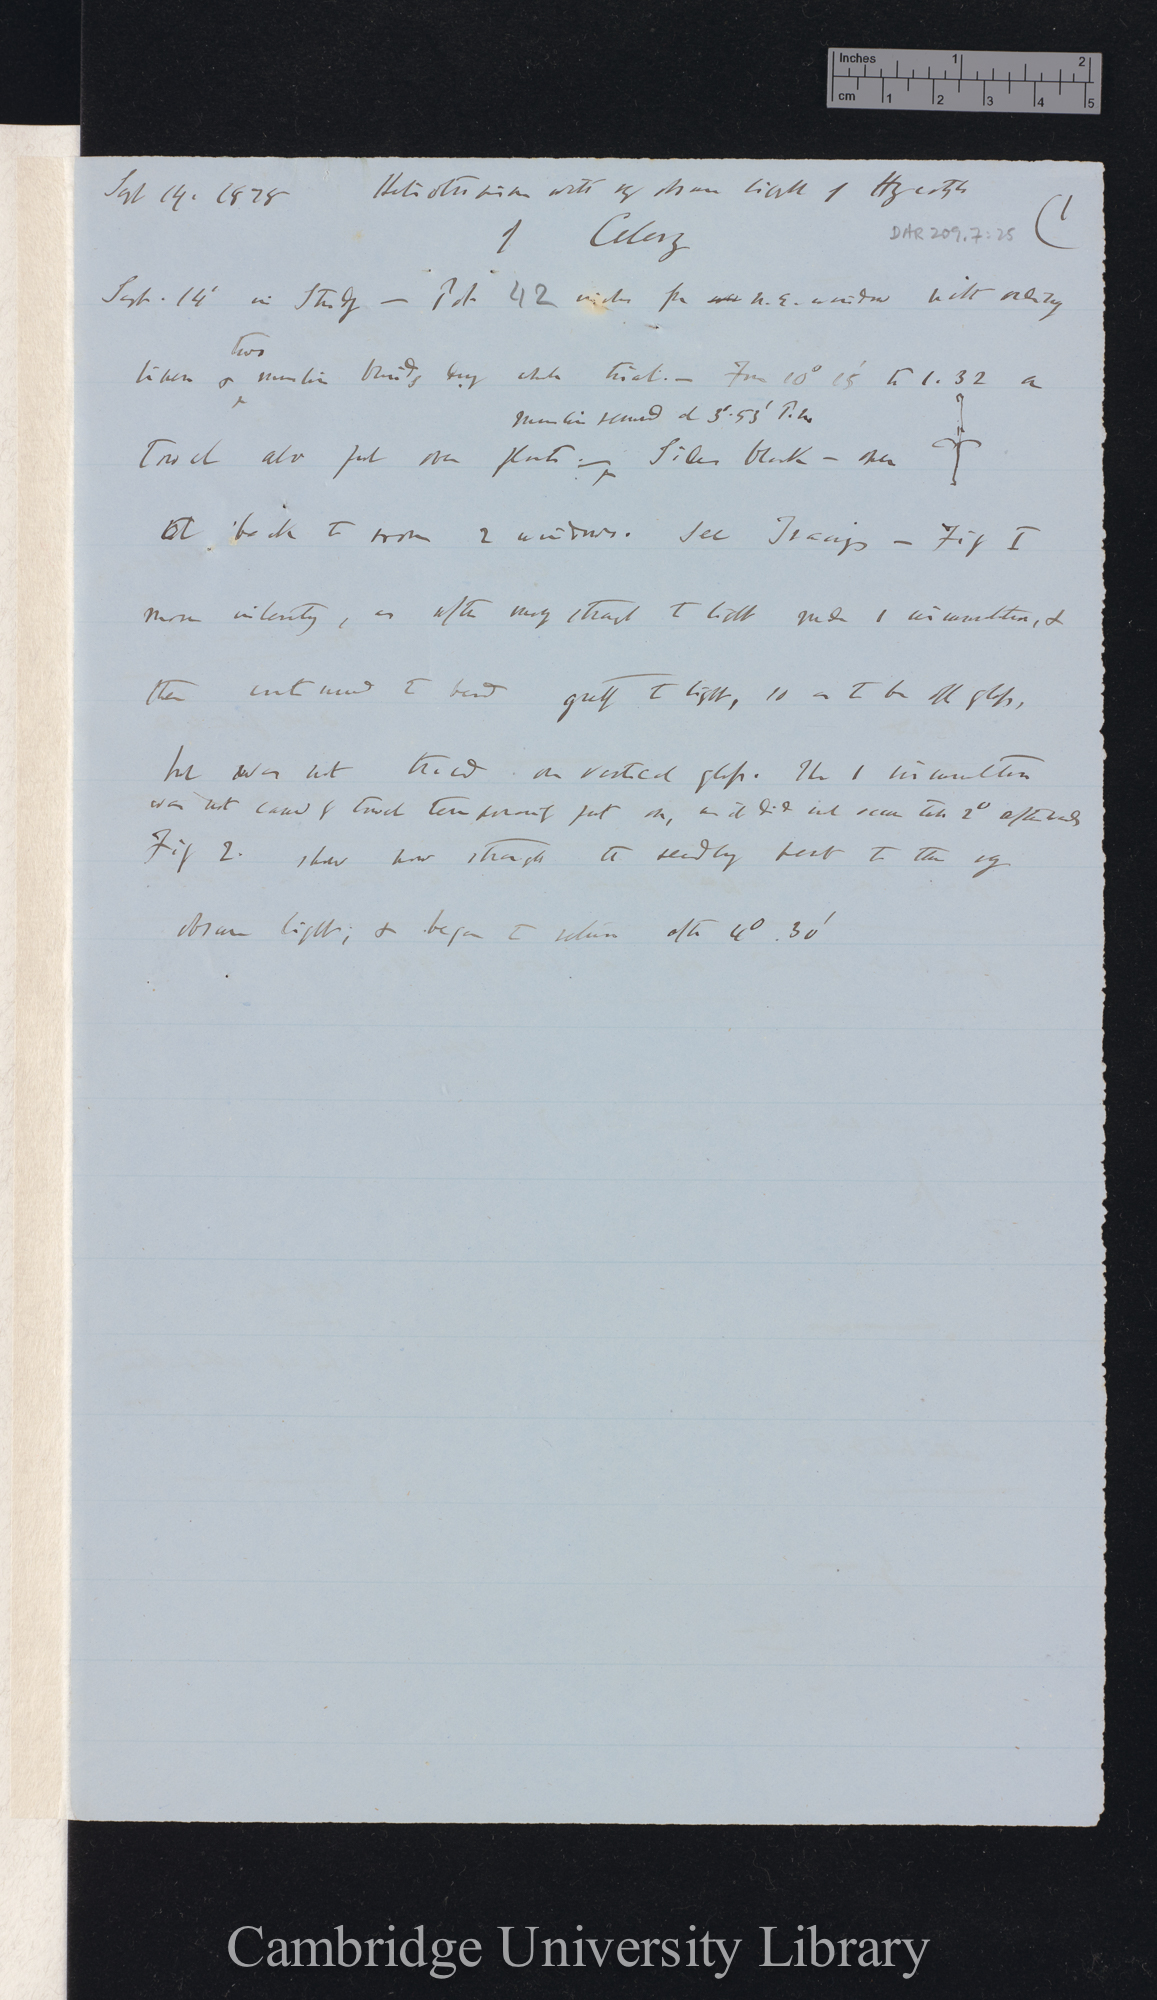 Inches 1 2
cm 1 2 3 4 5
Sept 14. 1878 Heliotropism with very obscure light of Hypocotyls
of Celery
DAR 209.7:25
(1
Sept. 14' in Study — Pot 42 inches from n.e. window with ordinary
two
linen & muslin blinds during whole trial. — From 10° 15' to 1. 32 a
muslin removed at 3°.53' P.m
Towel also put over plants — Sides black — open
at back to room 2 windows. See Tracings — Fig I
more interesting, as after moving straight to light made 1 circumnutation, &
then continued to bend greatly to light, so as to be off glass,
but was not traced on vertical glass. The 1 circumnutation
was not caused by towel temporarily put on, as it did not occur till 2° afterwards
Fig 2. shows how straight the seedling bent to the very
obscure light; & began to return after 4° .30'
Cambridge University Library